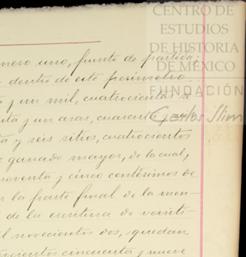 CENTRO DE
ESTUDIOS
DE HISTORIA
DE MÉXICO
FUNDACIÓN
Carlos Slim
mero uno, punto de partida
dentro de este perímetro
y un mil, cuatrocientas
ta y un aras, cuarenta
ta y seis sitios, cuatrocientos
ganado mayor, de la cual,
noventa y cinco centésimos de
la parte final de la men-
de la escritura de veinti-
il novecientos dos, quedan
cientos cincuenta y nueve